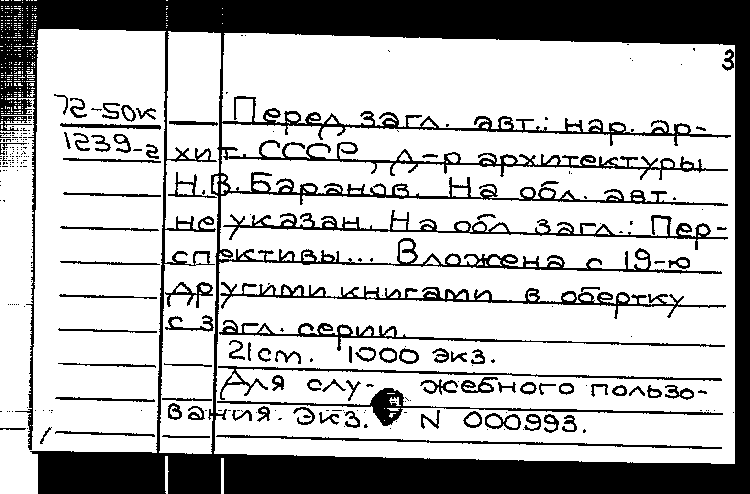 3
72-50к
1239-2
Перед загл. авт.: нар. ар-
хит. СССР, д-р архитектуры
Н.В. Баранов. На обл. авт.
не указан. На обл загл.: Пер-
спективы... Вложена с 19-ю
другими книгами в обертку
с загл. серии.
21 cm. 1000 экз.
Для слу- жебного пользо-
вания. Экз. N 000993.